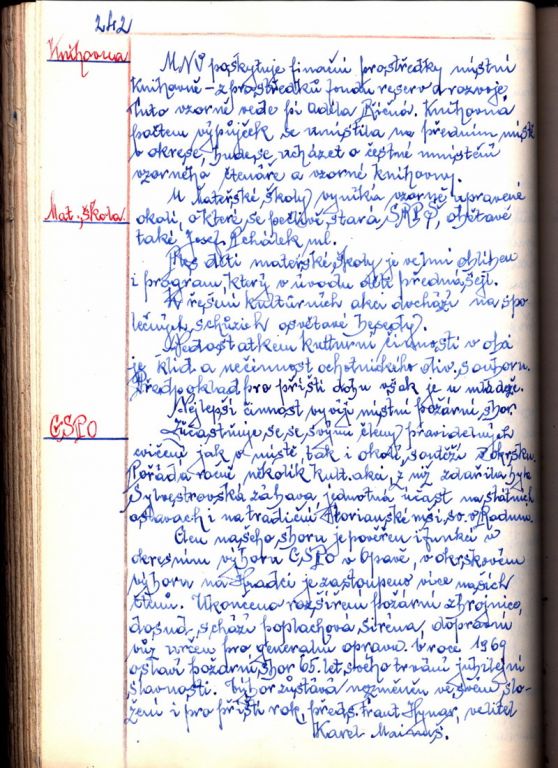 242
Knihovna
MNV poskytuje finační prostředky místní
knihovně - z prostředků fondu reserv a rozvoje
Tuto vzorně vede pí Adéla Říčná. Knihovna
počtem výpůjček se umístila na předním místě
v okrese, bude se ucházet o čestné umístění
vzorného čtenáře a vzorné knihovny.
Mat. škola
U Mateřské školy vyniká vzorně upravené
okolí, o které se pečlivě stará SRPŠ, obětavě
také Josef Pchálek ml.
Ples dětí mateřské školy je velmi oblíben
i program, který v úvodu děti přednášejí.
K řešení kulturních akcí dochází na spo
lečných schůzích osvětové besedy.
Nedostatkem kulturní činnosti v obci
je klid a nečinnost ochotnického div. souboru.
Předpoklad pro příští dobu však je u mládeže.
ČSPO
Nejlepší činnost vyvíjí místní požární sbor
Zúčastňuje se se svými členy pravidelných
cvičení jak v místě tak i okolí, soutěží okrsku.
Pořádá ročně několik kult. akcí, z níž zdařilá byla
Sylvestrovská zábava, jednotná účast na státních
oslavách i na tradiční Floriánské mši sv. v Raduni.
Člen našeho sboru je pověřen i funkcí v
okresním výboru ČSPO v Opavě, v okrskovém
výboru na Hradci je zastoupeno více našich
členů. Ukončeno rozšíření požární zbrojnice,
dosud schází poplachová sirena, dopravní
vůz určen pro generální opravu. V roce 1969
oslaví požární sbor 65. let svého trvání jubilejní
slavností. Výbor zůstává nezměněn ve svém slo-
žení i pro příští rok, předs. Frant. Hynar, velitel
Karel